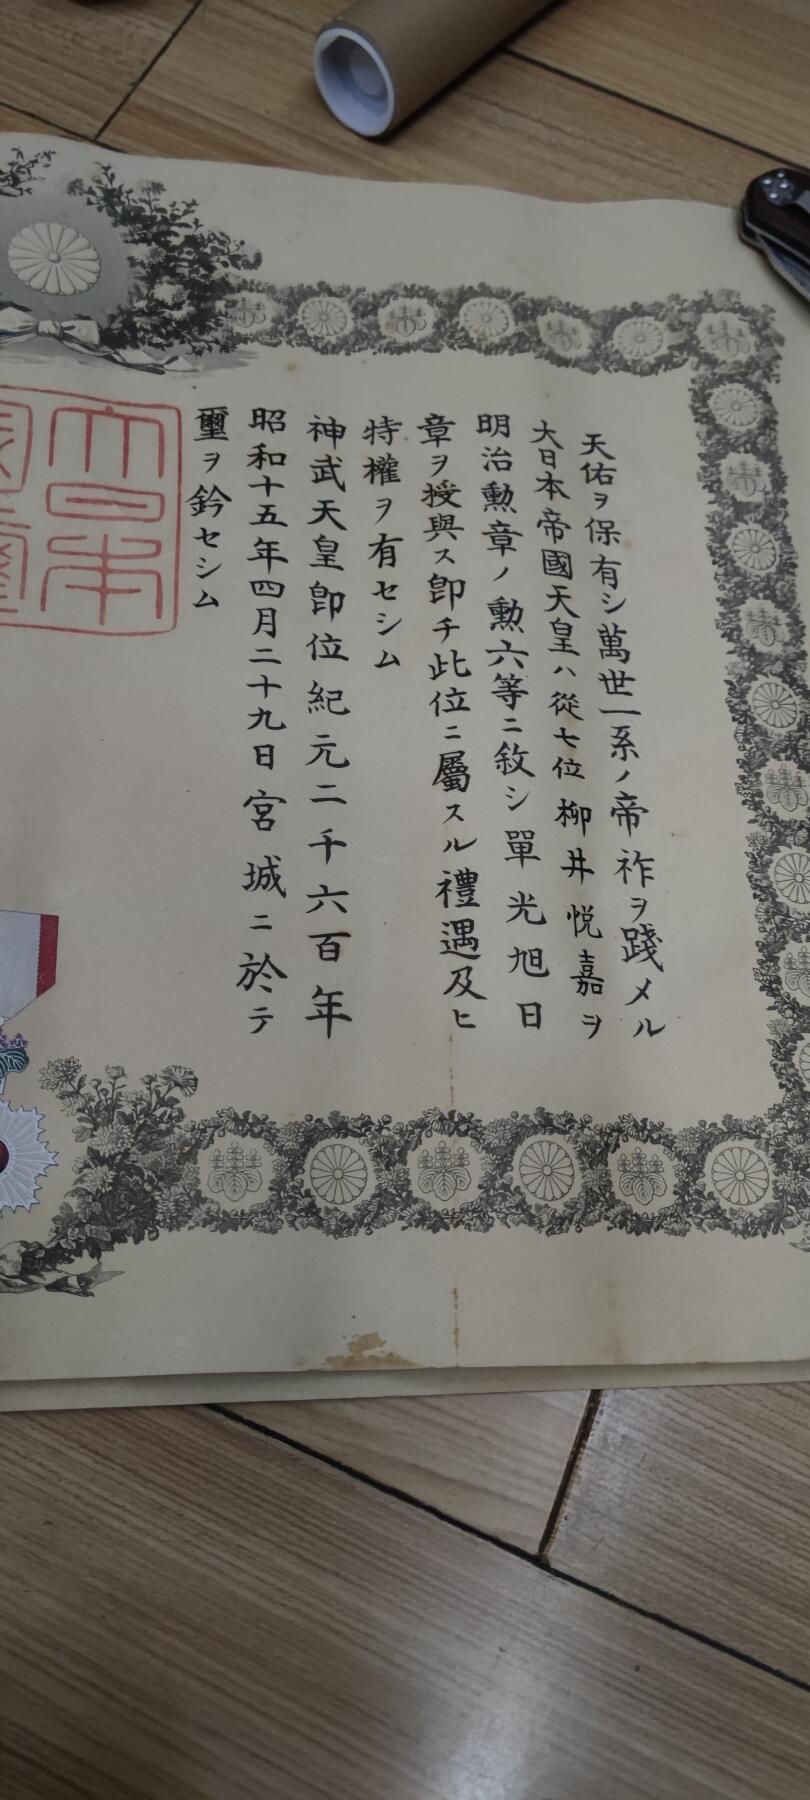 天佑ヲ保有シ萬世一系ノ帝祚ヲ踐メル
大日本帝國天皇ハ從七位柳井悦嘉ヲ
明治勲章ノ勲六等ニ敘シ單光旭日
章ヲ授與ス卽チ此位ニ屬スル禮遇及ヒ
特權ヲ有セシム
神武天皇卽位紀元二千六百年
昭和十五年四月二十九日宮城ニ於テ
璽ヲ鈐セシム
大日本
國璽